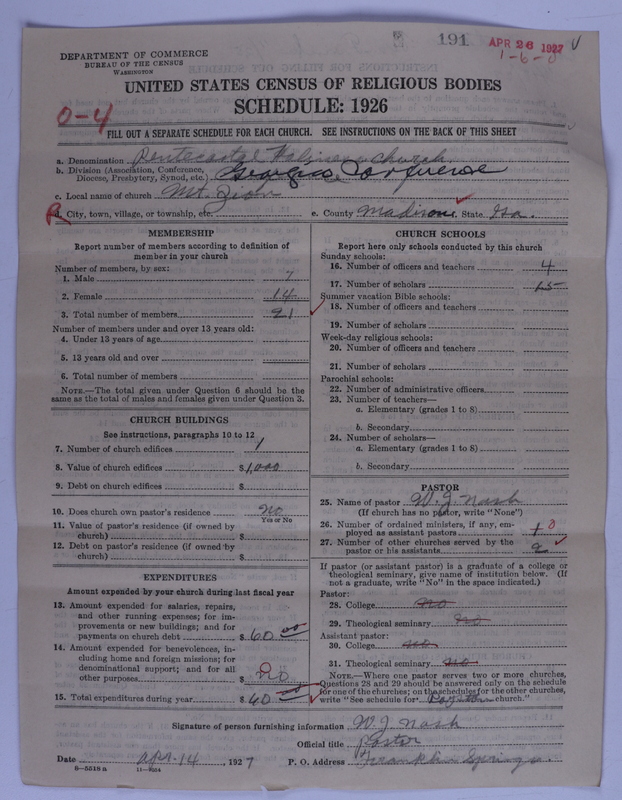 191
APR 26 1927
1-6-0
DEPARTMENT OF COMMERCE
BUREAU OF THE CENSUS
WASHINGTON
UNITED STATES CENSUS OF RELIGIOUS BODIES
SCHEDULE: 1926
0-4
FILL OUT A SEPARATE SCHEDULE FOR EACH CHURCH. SEE INSTRUCTIONS ON THE BACK OF THIS SHEET
a. Denomination Pentecostal Holiness church
b. Division (Association, Conference, Diocese, Presbytery, Synod, etc.) Georgia Conference
c. Local name of church Mt. Zion
R d. City, town, village, or township, etc.
e. County Madison State Ga.
MEMBERSHIP
Report number of members according to definition of
member in your church
Number of members, by sex:
1. Male 7
2. Female 14
3. Total number of members 21
Number of members under and over 13 years old:
4. Under 13 years of age
5. 13 years old and over
6. Total number of members
NOTE.—The total given under Question 6 should be the
same as the total of males and females given under Question 3.
CHURCH BUILDINGS
See instructions, paragraphs 10 to 12
7. Number of church edifices 1
8. Value of church edifices $1,000
9. Debt on church edifices $
10. Does church own pastor's residence No
Yes or No
11. Value of pastor's residence (if owned by
church) $
12. Debt on pastor's residence (if owned by
church) $
EXPENDITURES
Amount expended by your church during last fiscal year
13. Amount expended for salaries, repairs,
and other running expenses; for im-
provements or new buildings; and for
payments on church debt $ 60 00
14. Amount expended for benevolences, in-
cluding home and foreign missions; for
denominational support; and for all
other purposes $ no
15. Total expenditures during year $ 60
CHURCH SCHOOLS
Report here only schools conducted by this church
Sunday schools:
16. Number of officers and teachers 4
17. Number of scholars 65
Summer vacation Bible schools:
18. Number of officers and teachers
19. Number of scholars
Week-day religious schools:
20. Number of officers and teachers
21. Number of scholars
Parochial schools:
22. Number of administrative officers
23. Number of teachers—
a. Elementary (grades 1 to 8)
b. Secondary
24. Number of scholars—
a. Elementary (grades 1 to 8)
b. Secondary
PASTOR
25. Name of pastor W. J. Nash
(If church has no pastor, write "None")
26. Number of ordained ministers, if any, em-
ployed as assistant pastors 1 0
27. Number of other churches served by the
pastor or his assistants 2
If pastor (or assistant pastor) is a graduate of a college or
theological seminary, give name of institution below. (If
not a graduate, write "No" in the space indicated.)
Pastor:
28. College no
29. Theological seminary no
Assistant pastor:
30. College no
31. Theological seminary no
NOTE.—Where one pastor serves two or more churches,
Questions 28 and 29 should be answered only on the schedule
for one of the churches; on the schedules for the other churches,
write "See schedule for Royston church."
Signature of person furnishing information W. J. Nash
Official title Pastor
Date Apr. 14, 1927
P. O. Address Franklin Springs
8-5518a
11-8934